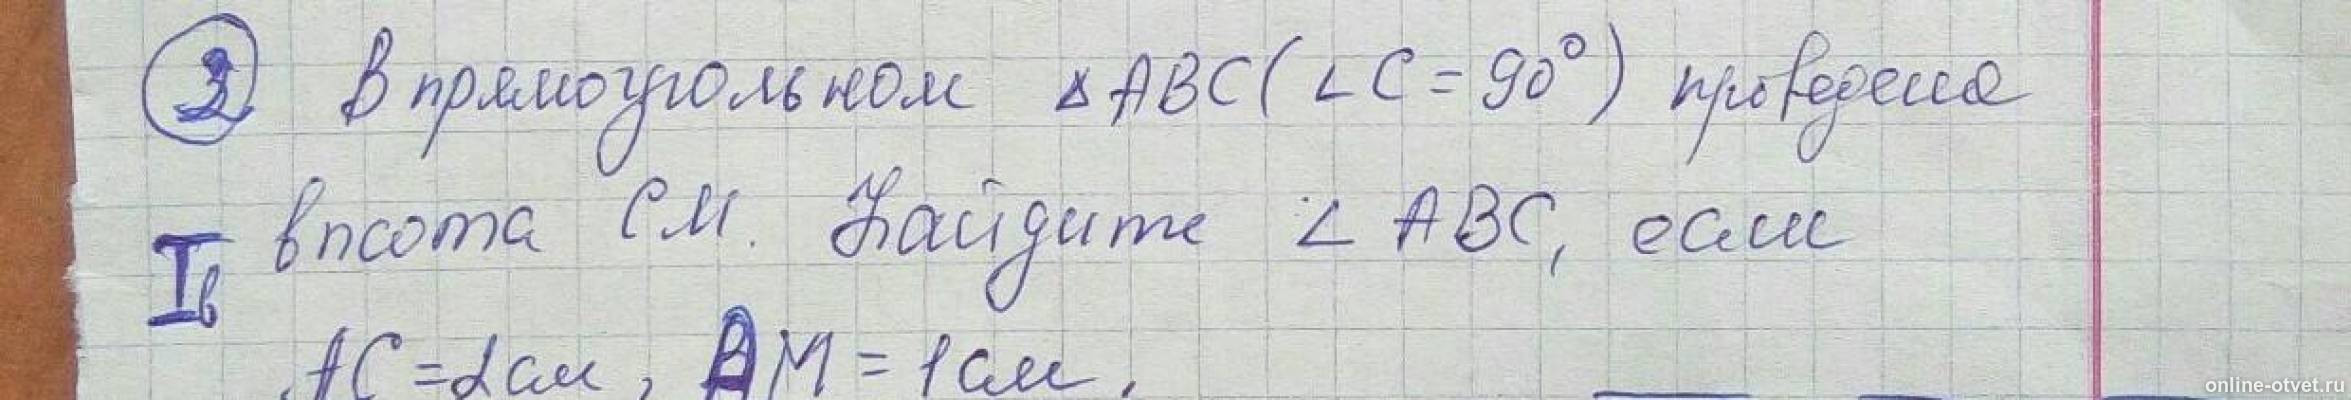 ② В прямоугольном △ABC (∠C = 90°) проведена
Iв высота СМ. Найдите ∠ ABC, если
AC = 2 см, AM = 1 см.
online-otvet.ru